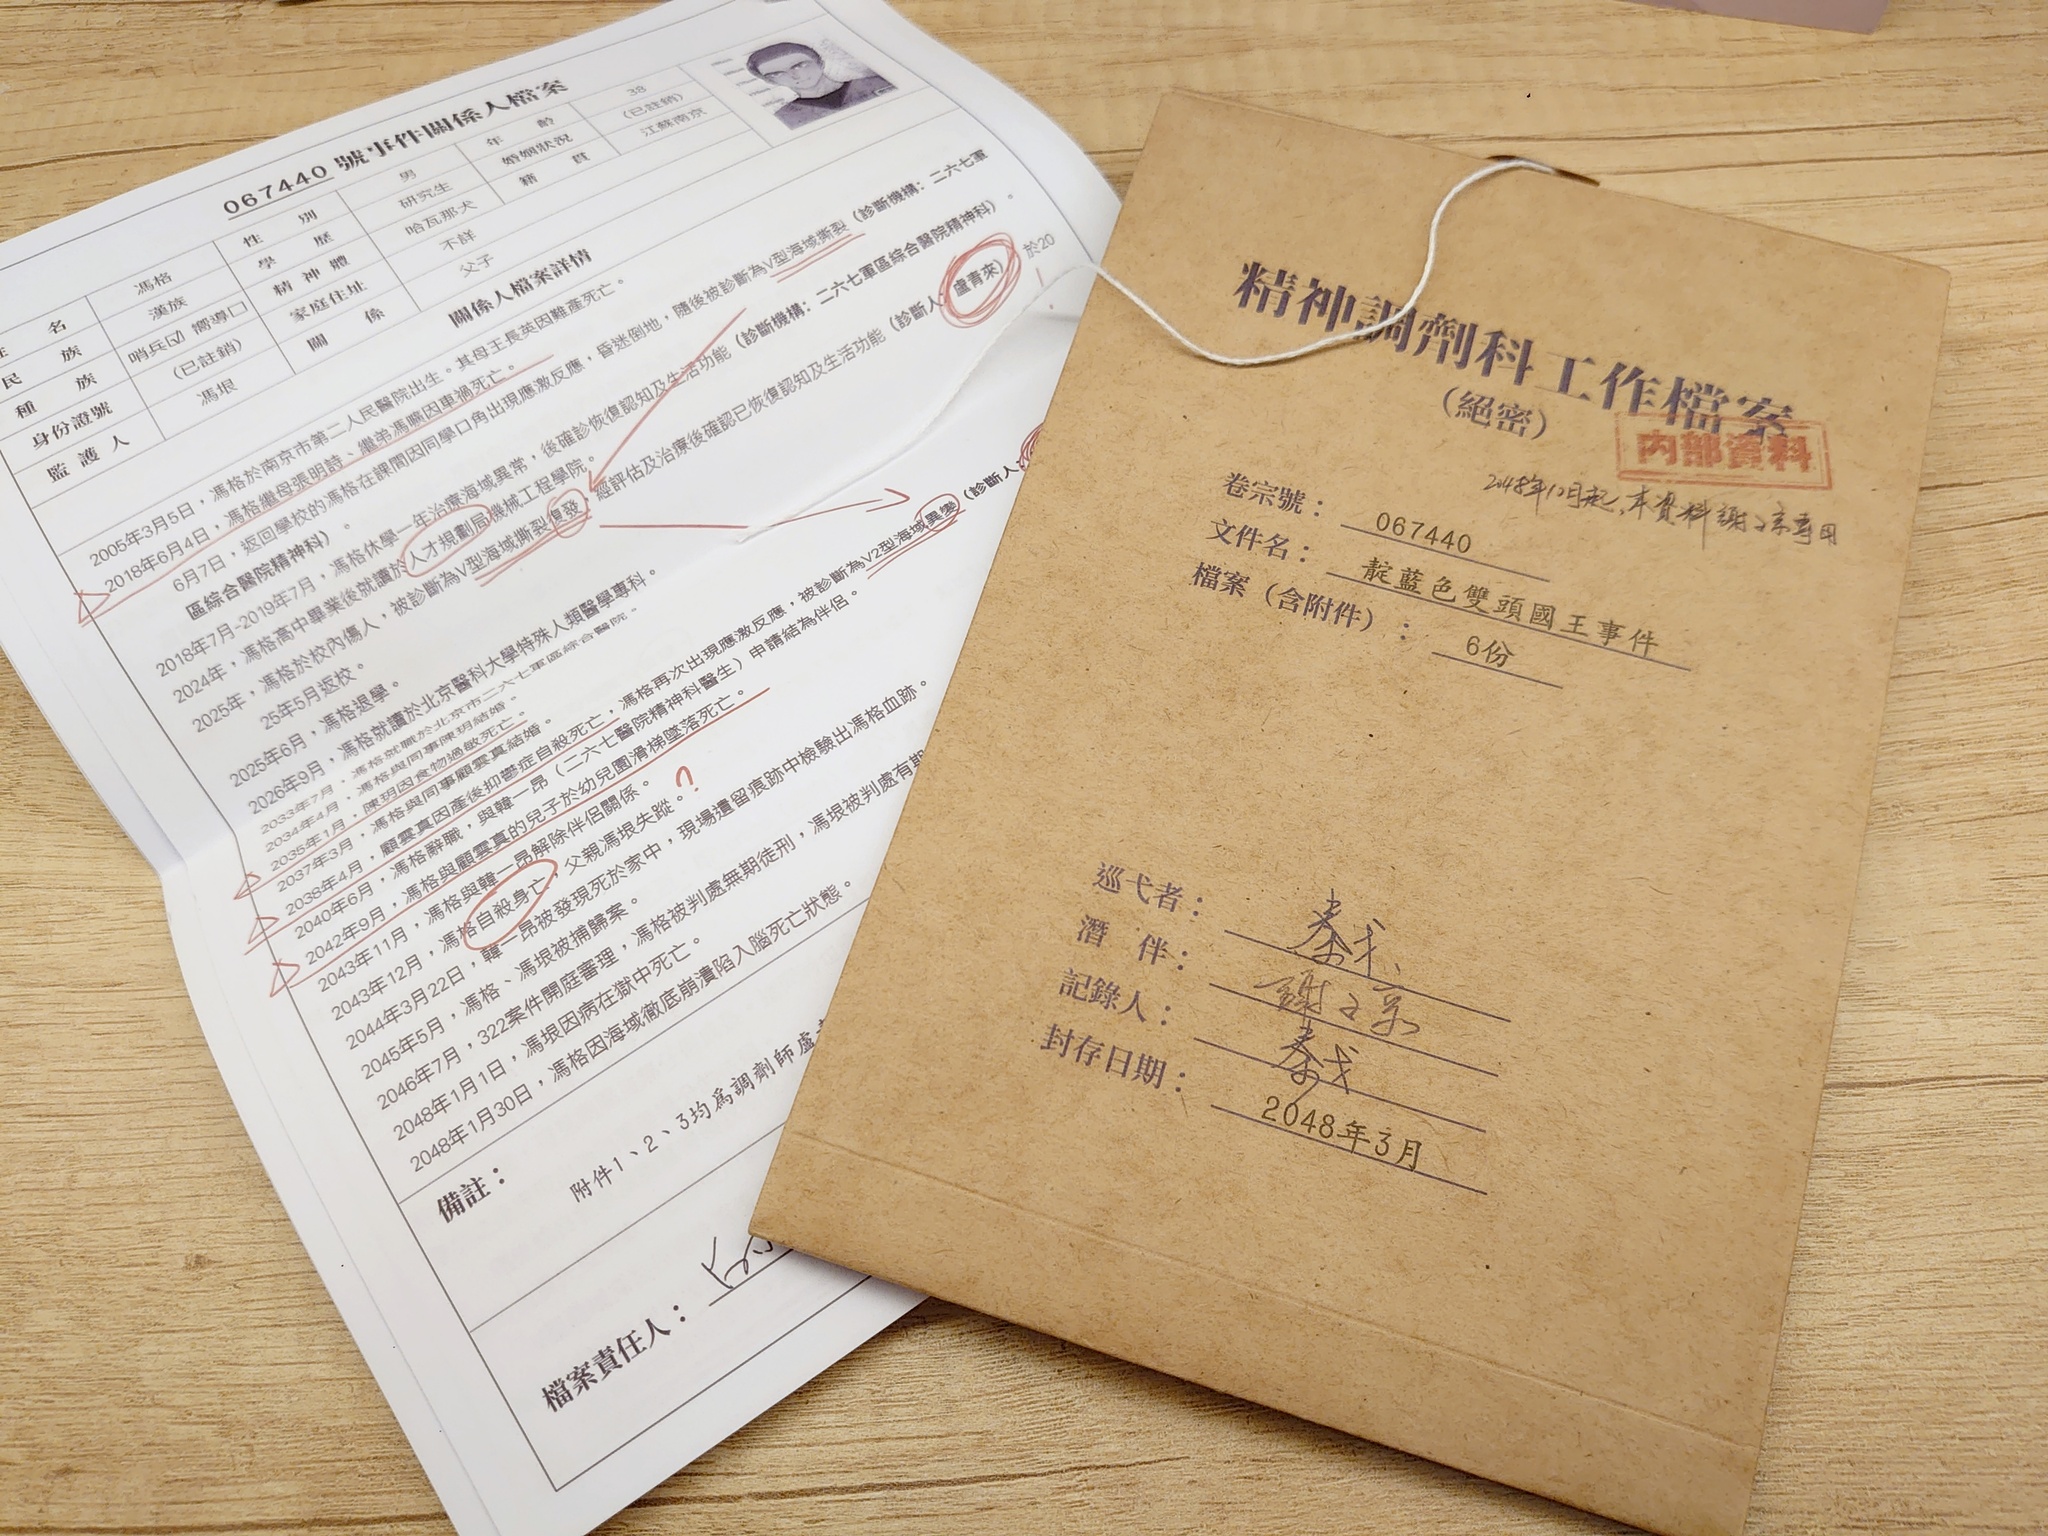 067440 號事件關係人檔案
姓 名 馮格 性 別 男 年 齡 38
民 族 漢族 學 歷 研究生 婚姻狀況 (已註銷)
種 族 哨兵☑ 嚮導☐ 精 神 體 哈瓦那犬 籍 貫 江蘇南京
身份證號 (已註銷) 家庭住址 不詳
監 護 人 馮垠 關 係 父子
關係人檔案詳情
2005年3月5日，馮格於南京市第二人民醫院出生。其母王長英因難產死亡。
2018年6月4日，馮格繼母張明詩、繼弟馮曠因車禍死亡。
6月7日，返回學校的馮格在課間因同學口角出現應激反應，昏迷倒地，隨後被診斷為V型海域撕裂（診斷機構：二六七軍
區綜合醫院精神科）。
2018年7月-2019年7月，馮格休學一年治療海域異常，後確診恢復認知及生活功能（診斷機構：二六七軍區綜合醫院精神科）。
2024年，馮格高中畢業後就讀於人才規劃局機械工程學院。
2025年，馮格於校內傷人，被診斷為V型海域撕裂復發，經評估及治療後確認已恢復認知及生活功能（診斷人：盧青來）於20
25年5月返校。
2025年6月，馮格退學。
2026年9月，馮格就讀於北京醫科大學特殊人類醫學專科。
2033年7月，馮格就職於北京市二六七軍區綜合醫院。
2034年4月，馮格與同事陳玥結婚。
2035年1月，陳玥因食物過敏死亡。
2037年3月，馮格與同事顧雲真結婚。
2038年4月，顧雲真因產後抑鬱症自殺死亡，馮格再次出現應激反應，被診斷為V2型海域異變（診斷人
2040年6月，馮格辭職，與韓一昂（二六七醫院精神科醫生）申請結為伴侶。
2042年9月，馮格與顧雲真的兒子於幼兒園滑梯墜落死亡。
2043年11月，馮格與韓一昂解除伴侶關係。
2043年12月，馮格自殺身亡，父親馮垠失蹤。?
2044年3月22日，韓一昂被發現死於家中，現場遺留痕跡中檢驗出馮格血跡。
2045年5月，馮格、馮垠被捕歸案。
2046年7月，322案件開庭審理，馮格被判處無期徒刑，馮垠被判處有期
2048年1月1日，馮垠因病在獄中死亡。
2048年1月30日，馮格因海域徹底崩潰陷入腦死亡狀態。
備註：
附件1、2、3均為調劑師盧
檔案責任人：
精神調劑科工作檔案
(絕密)
內部資料
2048年12月起，本資料謝子京專用
卷宗號： 067440
文件名： 靛藍色雙頭國王事件
檔案（含附件）： 6份
巡弋者： 秦戈
潛 伴： 謝子京
記錄人： 秦戈
封存日期： 2048年3月